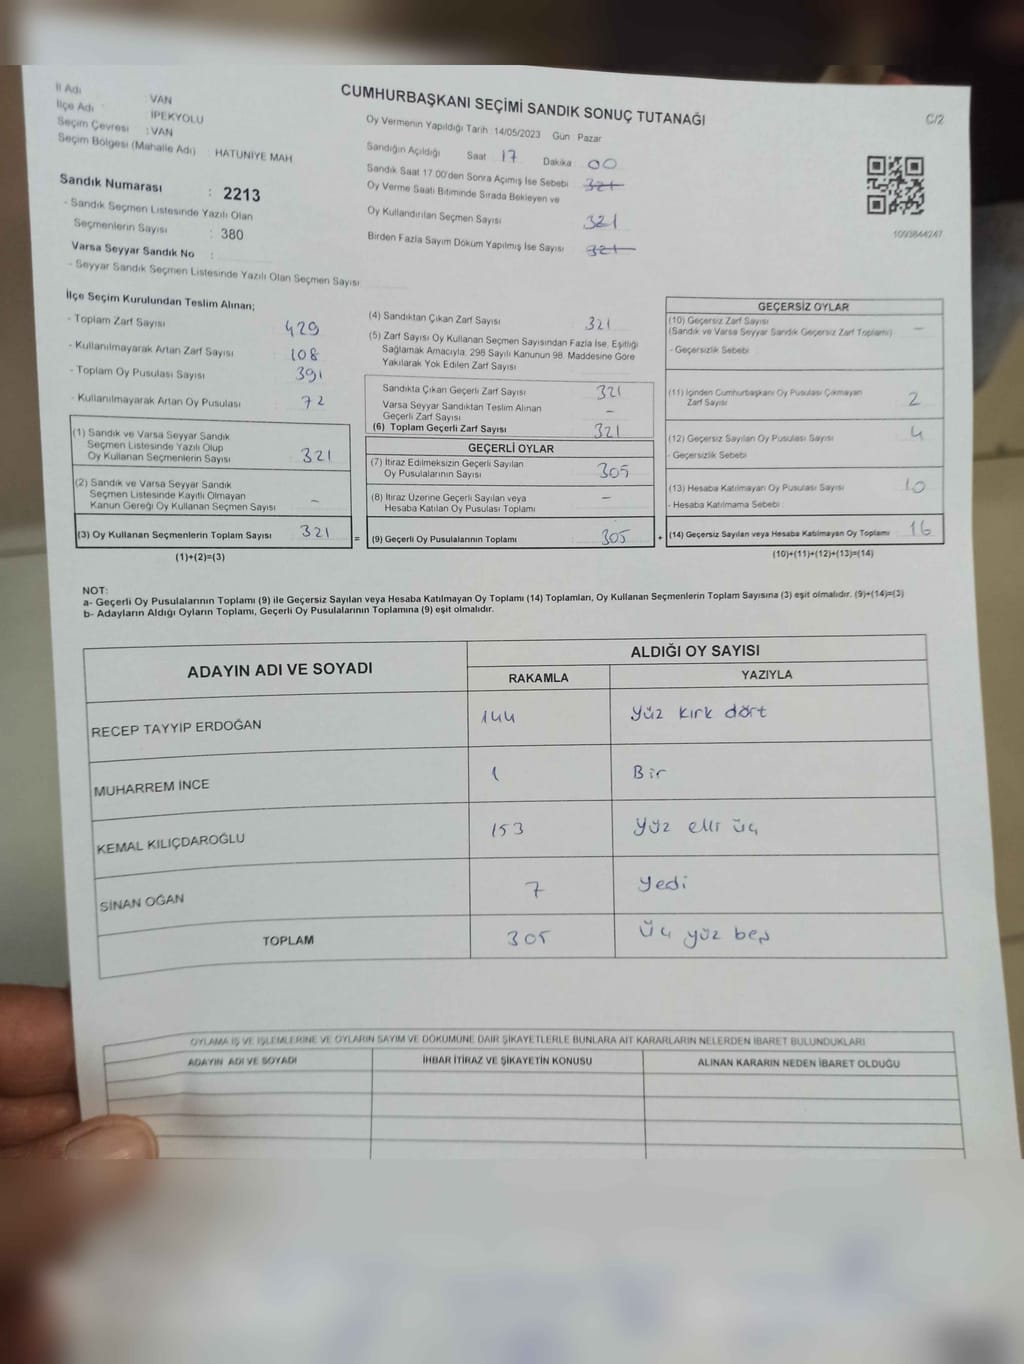 İl Adı : VAN
İlçe Adı : İPEKYOLU
Seçim Çevresi : VAN
Seçim Bölgesi (Mahalle Adı) : HATUNİYE MAH
CUMHURBAŞKANI SEÇİMİ SANDIK SONUÇ TUTANAĞI
C/2
Oy Vermenin Yapıldığı Tarih : 14/05/2023 Gün Pazar
Sandığın Açıldığı Saat 17 Dakika 00
Sandık Saat 17.00'den Sonra Açımış İse Sebebi 321
Oy Verme Saati Bitiminde Sırada Bekleyen ve
Oy Kullandırılan Seçmen Sayısı 321
Birden Fazla Sayım Döküm Yapılmış İse Sayısı 321
1093844247
Sandık Numarası : 2213
- Sandık Seçmen Listesinde Yazılı Olan
Seçmenlerin Sayısı : 380
Varsa Seyyar Sandık No :
- Seyyar Sandık Seçmen Listesinde Yazılı Olan Seçmen Sayısı
İlçe Seçim Kurulundan Teslim Alınan;
- Toplam Zarf Sayısı 429
- Kullanılmayarak Artan Zarf Sayısı 108
- Toplam Oy Pusulası Sayısı 391
- Kullanılmayarak Artan Oy Pusulası 72
(1) Sandık ve Varsa Seyyar Sandık
Seçmen Listesinde Yazılı Olup
Oy Kullanan Seçmenlerin Sayısı 321
(2) Sandık ve Varsa Seyyar Sandık
Seçmen Listesinde Kayıtlı Olmayan
Kanun Gereği Oy Kullanan Seçmen Sayısı -
(3) Oy Kullanan Seçmenlerin Toplam Sayısı 321
(1)+(2)=(3)
=
(4) Sandıktan Çıkan Zarf Sayısı 321
(5) Zarf Sayısı Oy Kullanan Seçmen Sayısından Fazla İse, Eşitliği
Sağlamak Amacıyla, 298 Sayılı Kanunun 98. Maddesine Göre
Yakılarak Yok Edilen Zarf Sayısı
Sandıkta Çıkan Geçerli Zarf Sayısı 321
Varsa Seyyar Sandıktan Teslim Alınan
Geçerli Zarf Sayısı -
(6) Toplam Geçerli Zarf Sayısı 321
GEÇERLİ OYLAR
(7) İtiraz Edilmeksizin Geçerli Sayılan
Oy Pusulalarının Sayısı 305
(8) İtiraz Üzerine Geçerli Sayılan veya
Hesaba Katılan Oy Pusulası Toplamı -
(9) Geçerli Oy Pusulalarının Toplamı 305
+
GEÇERSİZ OYLAR
(10) Geçersiz Zarf Sayısı
(Sandık ve Varsa Seyyar Sandık Geçersiz Zarf Toplamı) -
- Geçersizlik Sebebi
(11) İçinden Cumhurbaşkanı Oy Pusulası Çıkmayan
Zarf Sayısı 2
(12) Geçersiz Sayılan Oy Pusulası Sayısı 4
- Geçersizlik Sebebi
(13) Hesaba Katılmayan Oy Pusulası Sayısı 10
- Hesaba Katılmama Sebebi
(14) Geçersiz Sayılan veya Hesaba Katılmayan Oy Toplamı 16
(10)+(11)+(12)+(13)=(14)
NOT:
a- Geçerli Oy Pusulalarının Toplamı (9) ile Geçersiz Sayılan veya Hesaba Katılmayan Oy Toplamı (14) Toplamları, Oy Kullanan Seçmenlerin Toplam Sayısına (3) eşit olmalıdır. (9)+(14)=(3)
b- Adayların Aldığı Oyların Toplamı, Geçerli Oy Pusulalarının Toplamına (9) eşit olmalıdır.
ADAYIN ADI VE SOYADI
ALDIĞI OY SAYISI
RAKAMLA YAZIYLA
RECEP TAYYİP ERDOĞAN 144 Yüz kırk dört
MUHARREM İNCE 1 Bir
KEMAL KILIÇDAROĞLU 153 Yüz elli üç
SİNAN OĞAN 7 Yedi
TOPLAM 305 Üç yüz beş
OYLAMA İŞ VE İŞLEMLERİNE VE OYLARIN SAYIM VE DÖKÜMÜNE DAİR ŞİKAYETLERLE BUNLARA AİT KARARLARIN NELERDEN İBARET BULUNDUKLARI
ADAYIN ADI VE SOYADI İHBAR İTİRAZ VE ŞİKAYETİN KONUSU ALINAN KARARIN NEDEN İBARET OLDUĞU